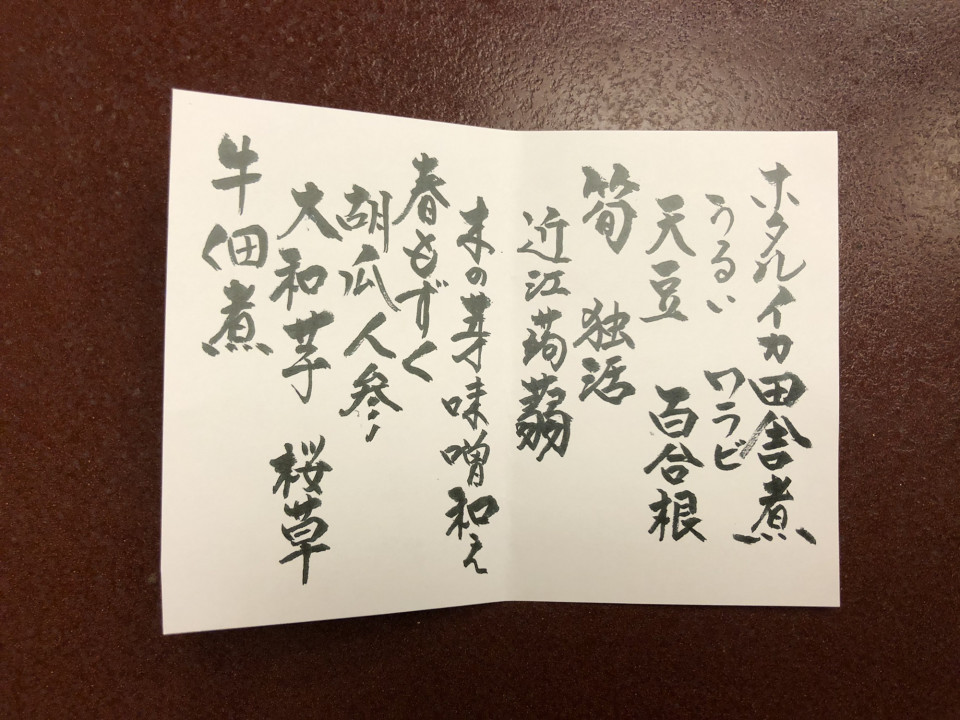 ホタルイカ田舎煮
うるい ワラビ
天豆 百合根
筍 独活
近江蒟蒻
木の芽味噌和え
春もずく
胡瓜 人参
大和芋 桜草
牛佃煮